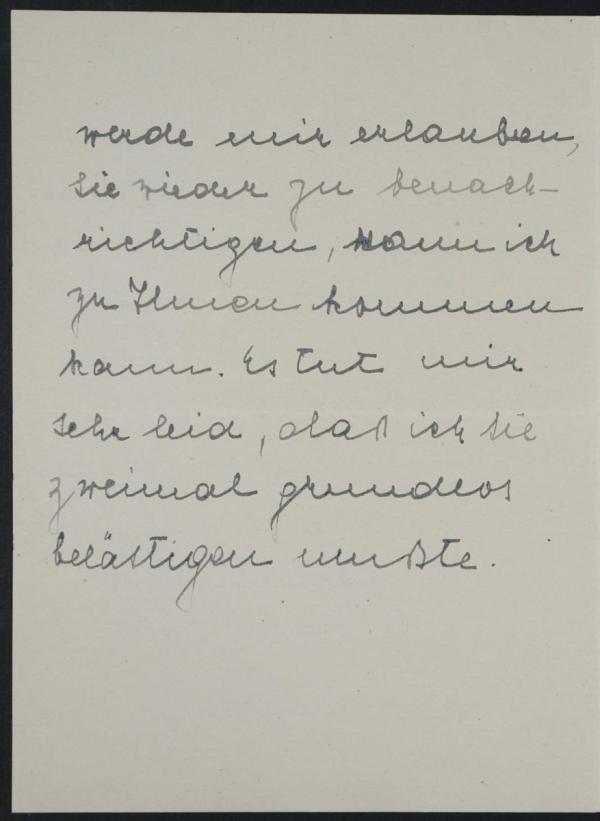 werde mir erlauben,
Sie wieder zu benach-
richtigen, wann ich
zu Ihnen kommen
kann. Es tut mir
sehr leid, daß ich Sie
zweimal grundlos
belästigen mußte.